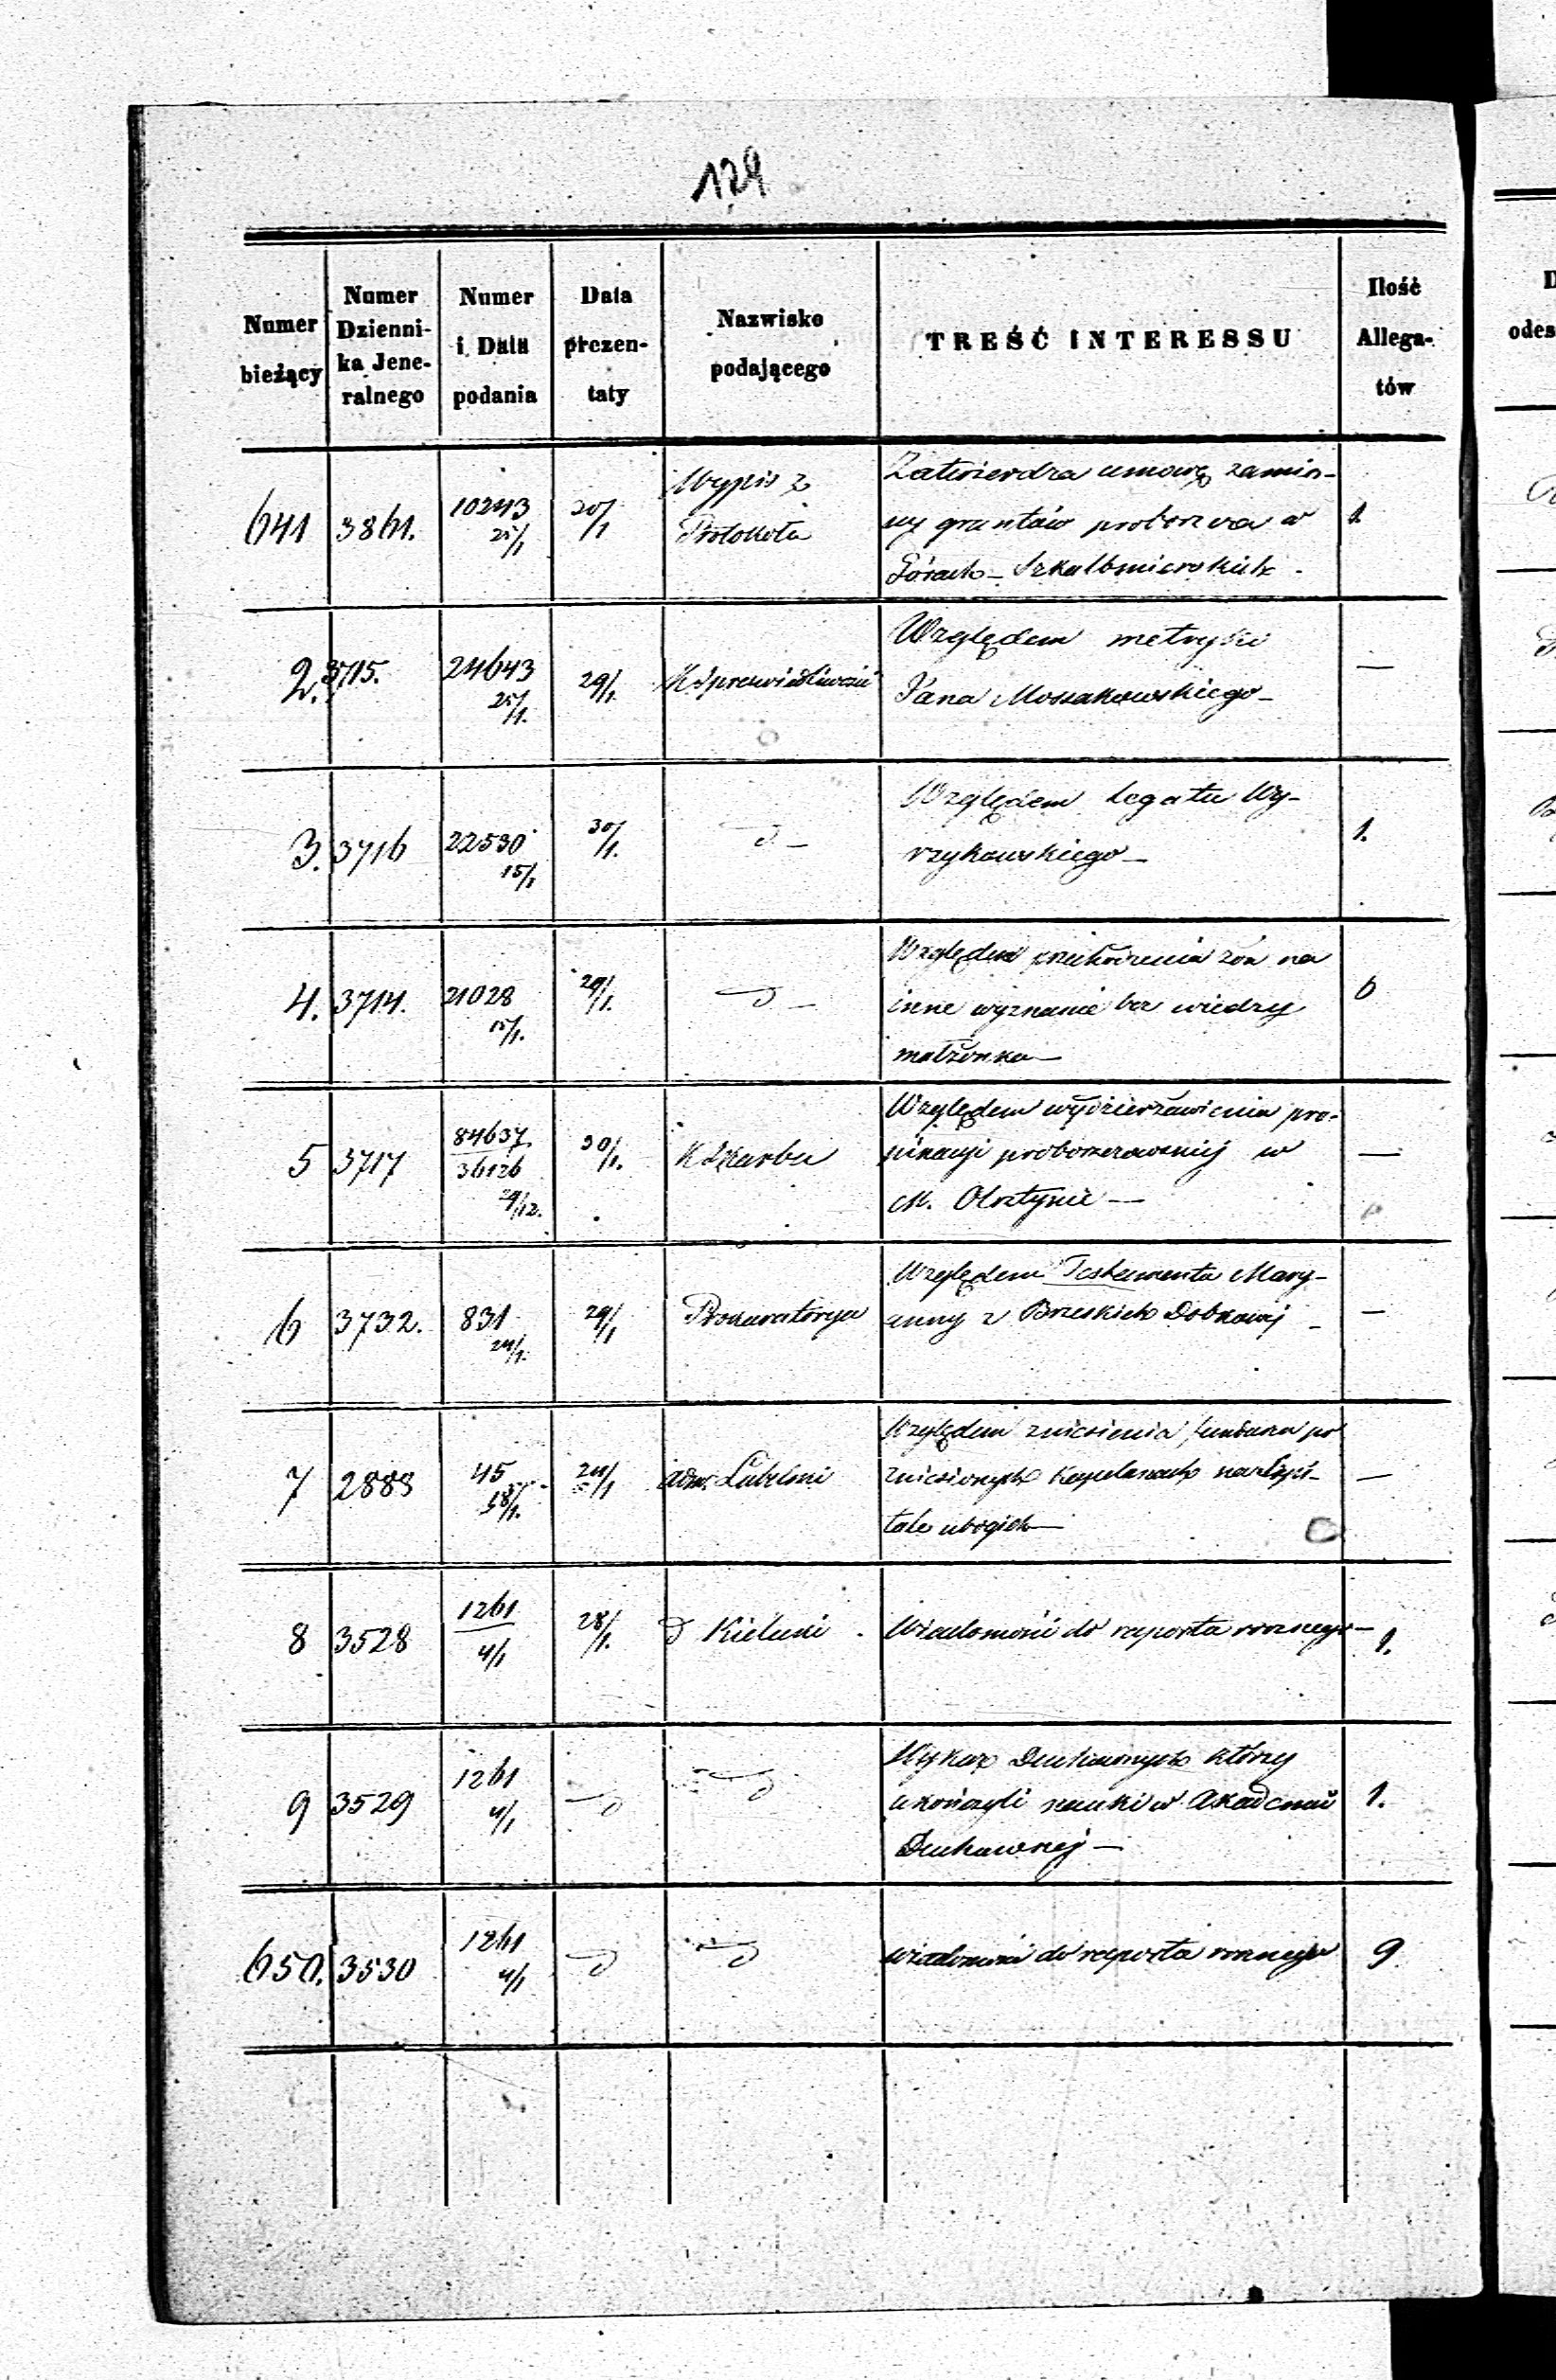 129
Numer bieżący
Numer Dzienni-ka Jene-ralnego
Numer i Data podania
Data prezen-taty
Nazwisko podającego
TREŚĆ INTERESSU
Ilość Allega-tów
641 3861. 10243 25/1 Wypis z Zatwierdza umowę zamia-
Protokołu ny gruntów probostwa w 1.
Górach - Szkalbmierskich -
2. 3715. 24643 25/1. 29/1. K Sprawiedliwości Względem metryki —
Pana Mossakowskiego —
3. 3716 22530 15/1 30/1. d — Względem legatu Wy- 1.
rzykowskiego —
4. 3714. 21028 15/1. 29/1. d — Względem żon na 6
inne wyznanie bez wiedzy
małżonka —
5 3717 84637 36126 29/12. 30/1. K Skarbu Względem wydzierżawienia pro-
pinacyi w —
M. Olsztynie —
6 3732. 831 24/1. 29/1 Prokuratorya Względem Testamentu Mary- —
anny z Brzeskich
7 2883 45 24/1 Adm. Lubelski Względem zniesienia funduszu po
zniesionych na szpi- —
tale ubogich —
8 3528 1261 4/1 28/1. d Kielecki . Wiadomość do raportu rocznego — 1.
9 3529 1261 4/1 — d — d Wykaz Duchownych którzy
ukończyli nauki w Akademii 1.
Duchownej —
650. 3530 1261 4/1 — d — d wiadomości do raportu rocznego 9
D
odes